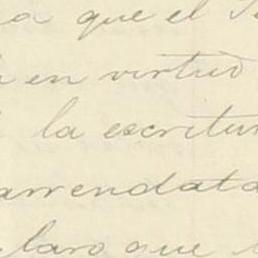 a que el
en virtud
la escritur
arrendata
claro que